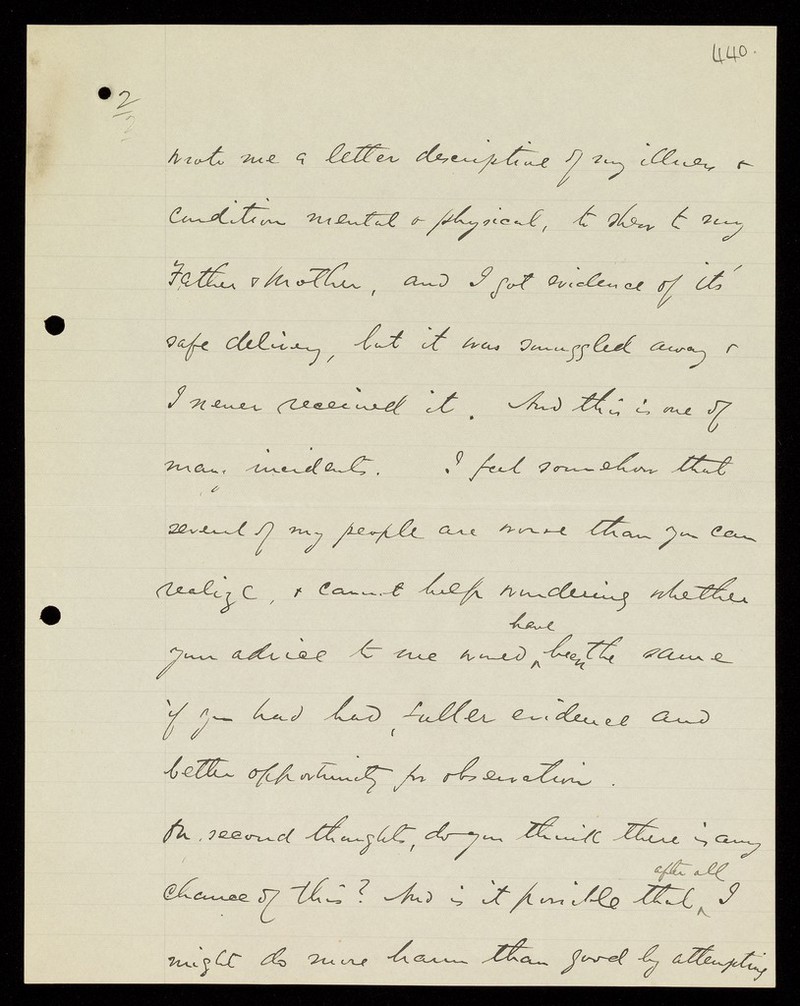 440.
2
wrote me a letter descriptive of my illness &
condition mental & physical, to shew to my
Father & Mother, and I got evidence of it's
safe delivery, but it was smuggled away &
I never received it. And this is one of
many incidents. I feel somehow that
several of my people are worse than you can
realize, & cannot help wondering whether
have
your advice to me would ‸ been the same
if you had had, fuller evidence and
better opportunity for observation.
On second thoughts, do you think there is any
after all
chance of this? And is it possible that ‸ I
might do more harm than good by attempting